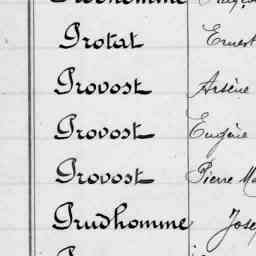 Protat Ernest
Provost Arsène
Provost Eugène
Provost Pierre
Prudhomme